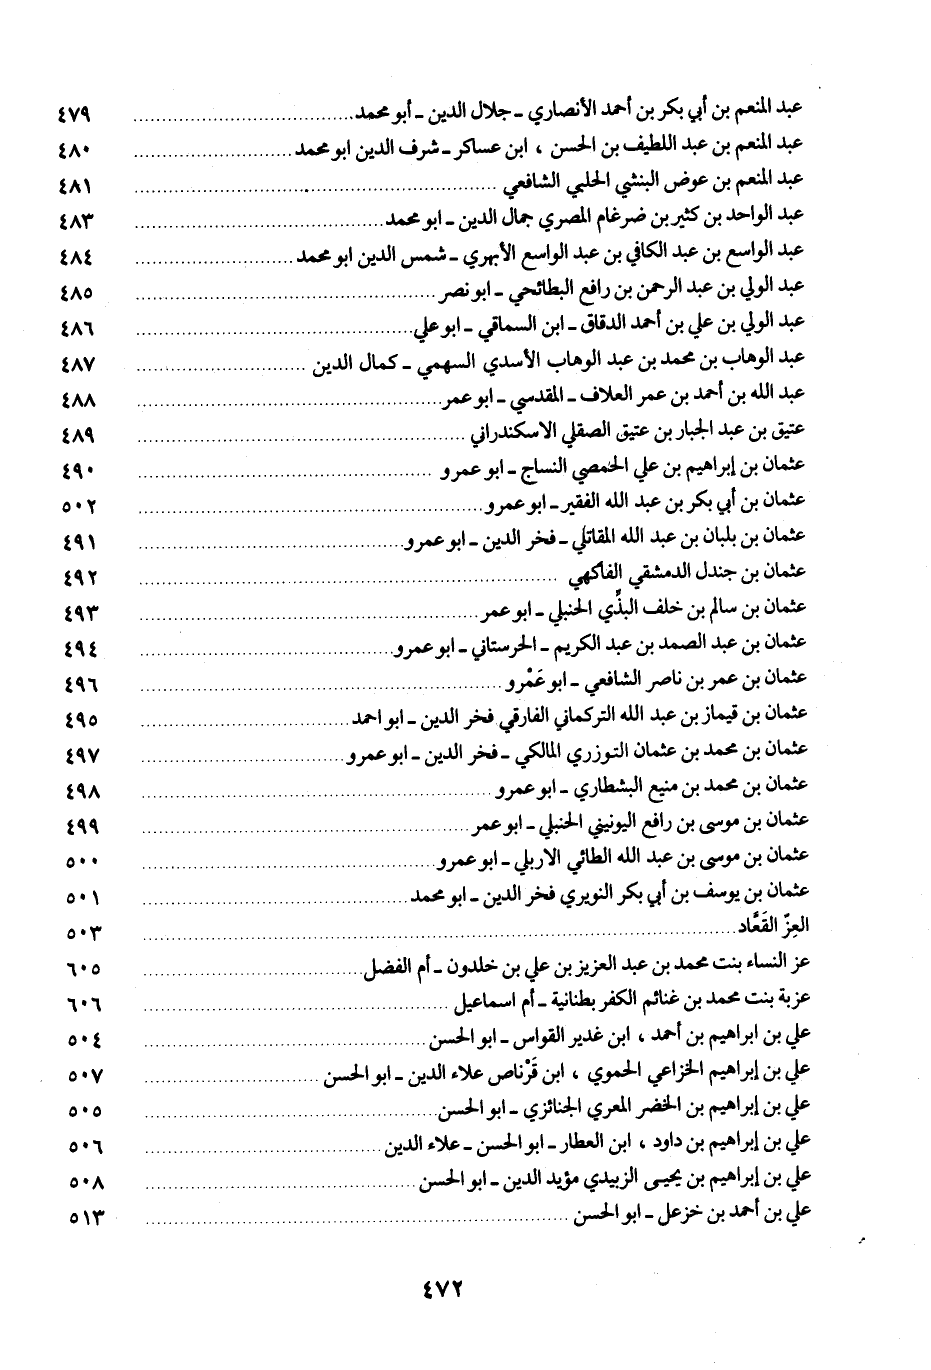 عبد المنعم بن أبي بكر بن أحمد الأنصاري ـ جلال الدين ـ أبو محمد ........ ٤٧٩
عبد المنعم بن عبد اللطيف بن الحسن ، ابن عساكر ـ شرف الدين ابو محمد ........ ٤٨٠
عبد المنعم بن عوض البنشي الحلبي الشافعي ........ ٤٨١
عبد الواحد بن كثير بن ضرغام المصري جمال الدين ـ ابو محمد ........ ٤٨٣
عبد الواسع بن عبد الكافي بن عبد الواسع الأبهري ـ شمس الدين ابو محمد ........ ٤٨٤
عبد الولي بن عبد الرحمن بن رافع البطائحي ـ ابو نصر ........ ٤٨٥
عبد الولي بن علي بن أحمد الدقاق ـ ابن السماقي ـ ابو علي ........ ٤٨٦
عبد الوهاب بن محمد بن عبد الوهاب الأسدي السهمي ـ كمال الدين ........ ٤٨٧
عبد الله بن أحمد بن عمر العلاف ـ المقدسي ـ ابو عمر ........ ٤٨٨
عتيق بن عبد الجبار بن عتيق الصقلي الاسكندراني ........ ٤٨٩
عثمان بن إبراهيم بن علي الحمصي النساج ـ ابو عمرو ........ ٤٩٠
عثمان بن أبي بكر بن عبد الله الفقير ـ ابو عمرو ........ ٥٠٢
عثمان بن بلبان بن عبد الله المقاتلي ـ فخر الدين ـ ابو عمرو ........ ٤٩١
عثمان بن جندل الدمشقي الفاكهي ........ ٤٩٢
عثمان بن سالم بن خلف البذِّي الحنبلي ـ ابو عمر ........ ٤٩٣
عثمان بن عبد الصمد بن عبد الكريم ـ الحرستاني ـ ابو عمرو ........ ٤٩٤
عثمان بن عمر بن ناصر الشافعي ـ ابو عَمْرو ........ ٤٩٦
عثمان بن قيماز بن عبد الله التركماني الفارقي فخر الدين ـ ابو احمد ........ ٤٩٥
عثمان بن محمد بن عثمان التوزري المالكي ـ فخر الدين ـ ابو عمرو ........ ٤٩٧
عثمان بن محمد بن منيع البشطاري ـ ابو عمرو ........ ٤٩٨
عثمان بن موسى بن رافع اليونيني الحنبلي ـ ابو عمر ........ ٤٩٩
عثمان بن موسى بن عبد الله الطائي الاربلي ـ ابو عمرو ........ ٥٠٠
عثمان بن يوسف بن أبي بكر النويري فخر الدين ـ ابو محمد ........ ٥٠١
العِزّ القَعَّاد ........ ٥٠٣
عز النساء بنت محمد بن عبد العزيز بن علي بن خلدون ـ أم الفضل ........ ٦٠٥
عزبة بنت محمد بن غنائم الكفر بطنانية ـ أم اسماعيل ........ ٦٠٦
علي بن ابراهيم بن أحمد ، ابن غدير القواس ـ ابو الحسن ........ ٥٠٤
علي بن إبراهيم الخزاعي الحموي ، ابن قَرْناص علاء الدين ـ ابو الحسن ........ ٥٠٧
علي بن إبراهيم بن الخضر المعري الجنائزي ـ ابو الحسن ........ ٥٠٥
علي بن إبراهيم بن داود ، ابن العطار ـ ابو الحسن ـ علاء الدين ........ ٥٠٦
علي بن إبراهيم بن يحيى الزبيدي مؤيد الدين ـ ابو الحسن ........ ٥٠٨
علي بن أحمد بن خزعل ـ ابو الحسن ........ ٥١٣
٤٧٢